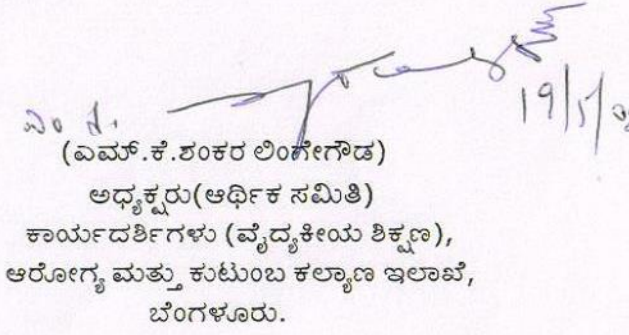 19/1/
(ಎಮ್.ಕೆ.ಶಂಕರ ಲಿಂಗೇಗೌಡ)
ಅಧ್ಯಕ್ಷರು(ಆರ್ಥಿಕ ಸಮಿತಿ)
ಕಾರ್ಯದರ್ಶಿಗಳು (ವೈದ್ಯಕೀಯ ಶಿಕ್ಷಣ),
ಆರೋಗ್ಯ ಮತ್ತು ಕುಟುಂಬ ಕಲ್ಯಾಣ ಇಲಾಖೆ,
ಬೆಂಗಳೂರು.